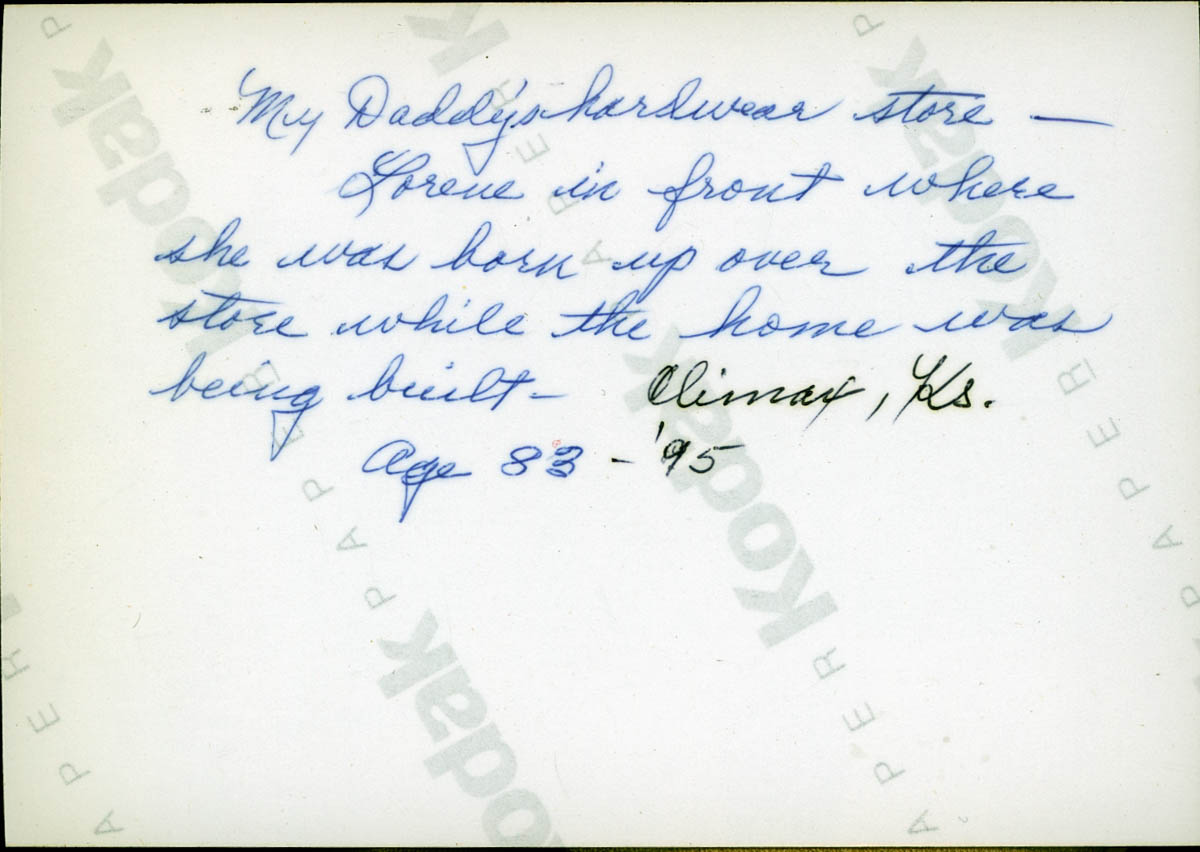 My Daddy's hardwear store —
Lorene in front where
she was born up over the
store while the home was
being built – Climax, Ks.
Age 83 – '95
Kodak
PAPER